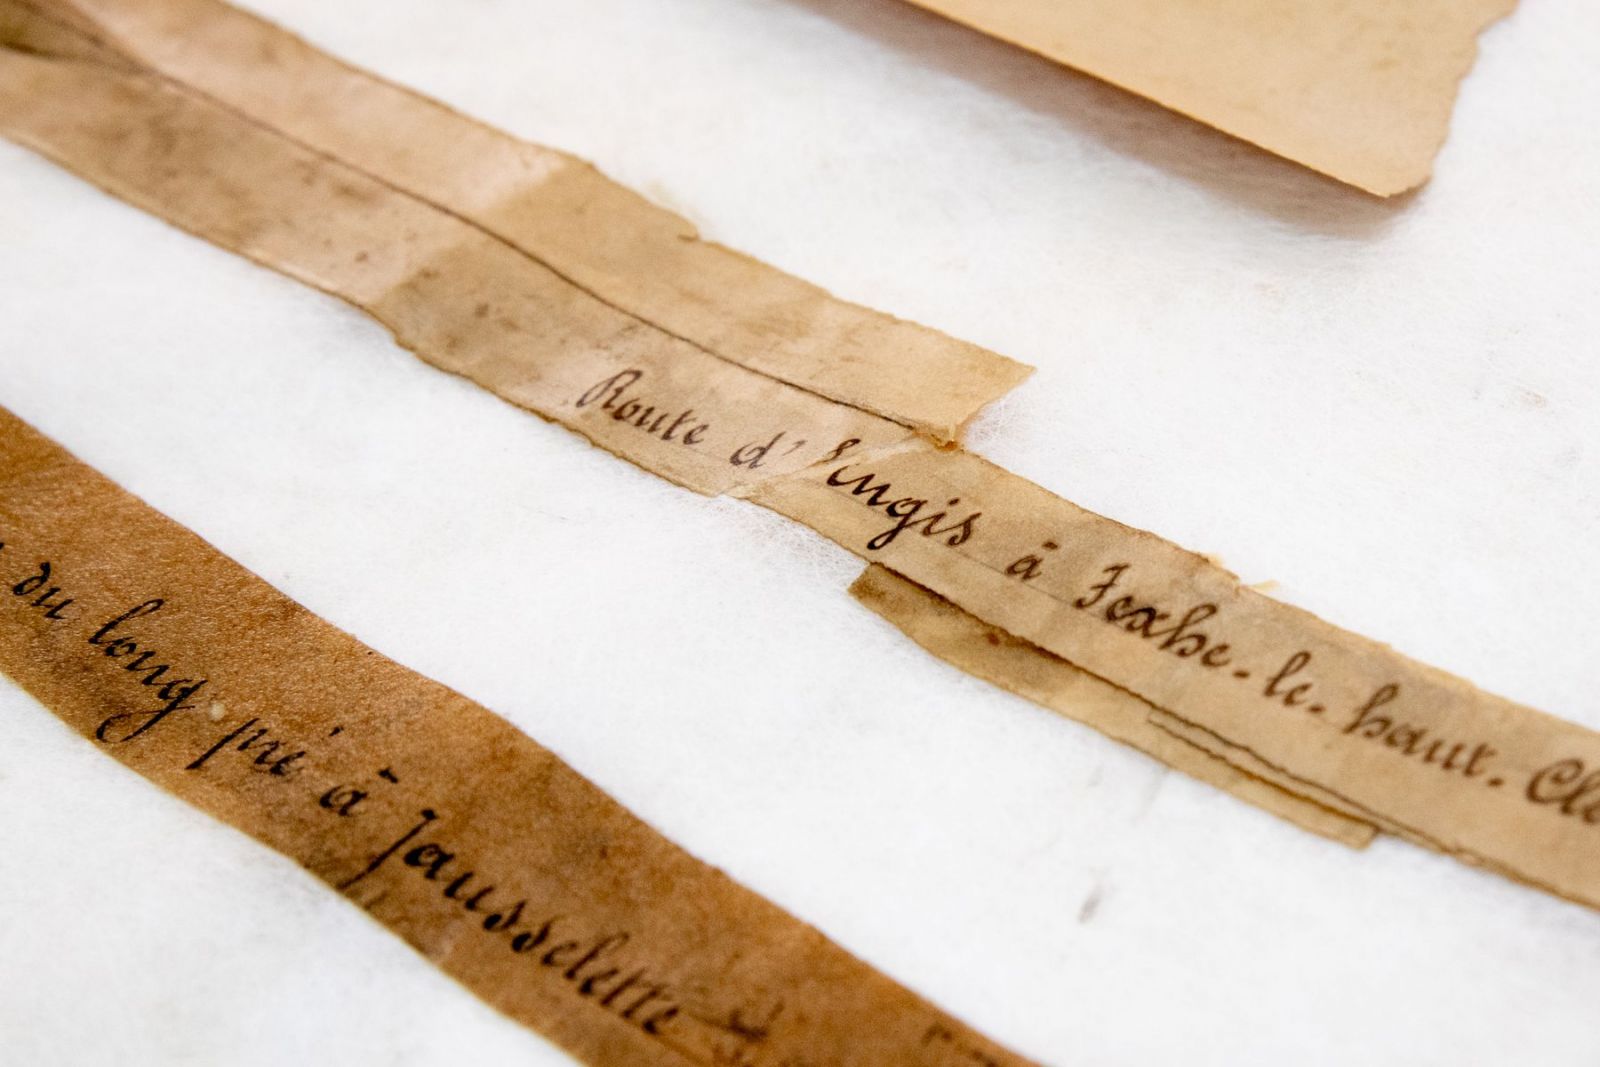 Route d'Engis à Fexhe-le-haut-Cle
du long pré à Jausselette